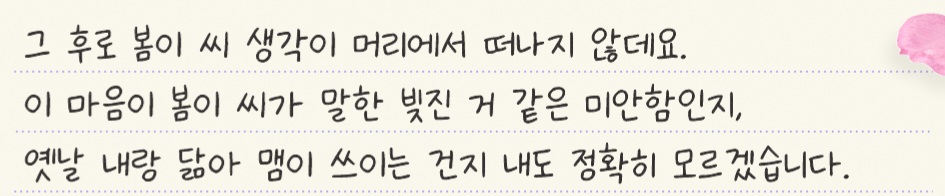 그 후로 봄이 씨 생각이 머리에서 떠나지 않데요.
이 마음이 봄이 씨가 말한 빚진 거 같은 미안함인지,
옛날 내랑 닮아 맴이 쓰이는 건지 내도 정확히 모르겠습니다.